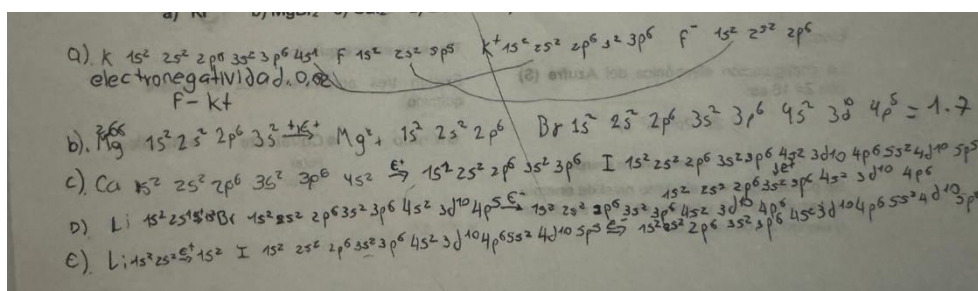 a) KF b) MgBr2
a). K 1s² 2s² 2p⁶ 3s² 3p⁶ 4s¹ F 1s² 2s² 5p⁵ K⁺ 1s² 2s² 2p⁶ s² 3p⁶ F⁻ 1s² 2s² 2p⁶
electronegatividad. 0,
F - K+
b). Mg 1s² 2s² 2p⁶ 3s² Mg²+ 1s² 2s² 2p⁶ Br 1s² 2s² 2p⁶ 3s² 3p⁶ 4s² 3d¹⁰ 4p⁵ = 1.7
c). Ca 1s² 2s² 2p⁶ 3s² 3p⁶ 4s² 1s² 2s² 2p⁶ 3s² 3p⁶ I 1s² 2s² 2p⁶ 3s² 3p⁶ 4s² 3d10 4p⁶ 5s² 4d¹⁰ 5p⁵
1s² 2s² 2p⁶ 3s² 3p⁶ 4s² 3d¹⁰ 4p⁶
D) Li 1s² 2s¹ Br 1s² 2s² 2p⁶ 3s² 3p⁶ 4s² 3d¹⁰ 4p⁵ 1s² 2s² 2p⁶ 3s² 3p⁶ 4s² 3d¹⁰ 4p⁶
E). Li 1s² 2s² 1s² I 1s² 2s² 2p⁶ 3s² 3p⁶ 4s² 3d¹⁰ 4p⁶ 5s² 4d¹⁰ 5p⁵ 1s² 2s² 2p⁶ 3s² 3p⁶ 4s² 3d¹⁰ 4p⁶ 5s² 4d¹⁰ 5p⁶